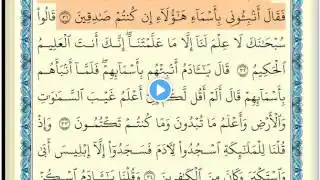 فَقَالَ أَنۢبِـُٔونِى بِأَسْمَآءِ هَـٰٓؤُلَآءِ إِن كُنتُمْ صَـٰدِقِينَ ٣١ قَالُوا۟
سُبْحَـٰنَكَ لَا عِلْمَ لَنَآ إِلَّا مَا عَلَّمْتَنَآ ۖ إِنَّكَ أَنتَ ٱلْعَلِيمُ
ٱلْحَكِيمُ ٣٢ قَالَ يَـٰٓـَٔادَمُ أَنۢبِئْهُم بِأَسْمَآئِهِمْ ۖ فَلَمَّآ أَنۢبَأَهُم
بِأَسْمَآئِهِمْ قَالَ أَلَمْ أَقُل لَّكُمْ أَعْلَمُ غَيْبَ ٱلسَّمَـٰوَٰتِ
وَٱلْأَرْضِ وَأَعْلَمُ مَا تُبْدُونَ وَمَا كُنتُمْ تَكْتُمُونَ ٣٣ وَإِذْ
قُلْنَا لِلْمَلَـٰٓئِكَةِ ٱسْجُدُوا۟ لِـَٔادَمَ فَسَجَدُوٓا۟ إِلَّآ إِبْلِيسَ أَبَىٰ
وَٱسْتَكْبَرَ وَكَانَ مِنَ ٱلْكَـٰفِرِينَ ٣٤ وَقُلْنَا يَـٰٓـَٔادَمُ ٱسْكُنْ